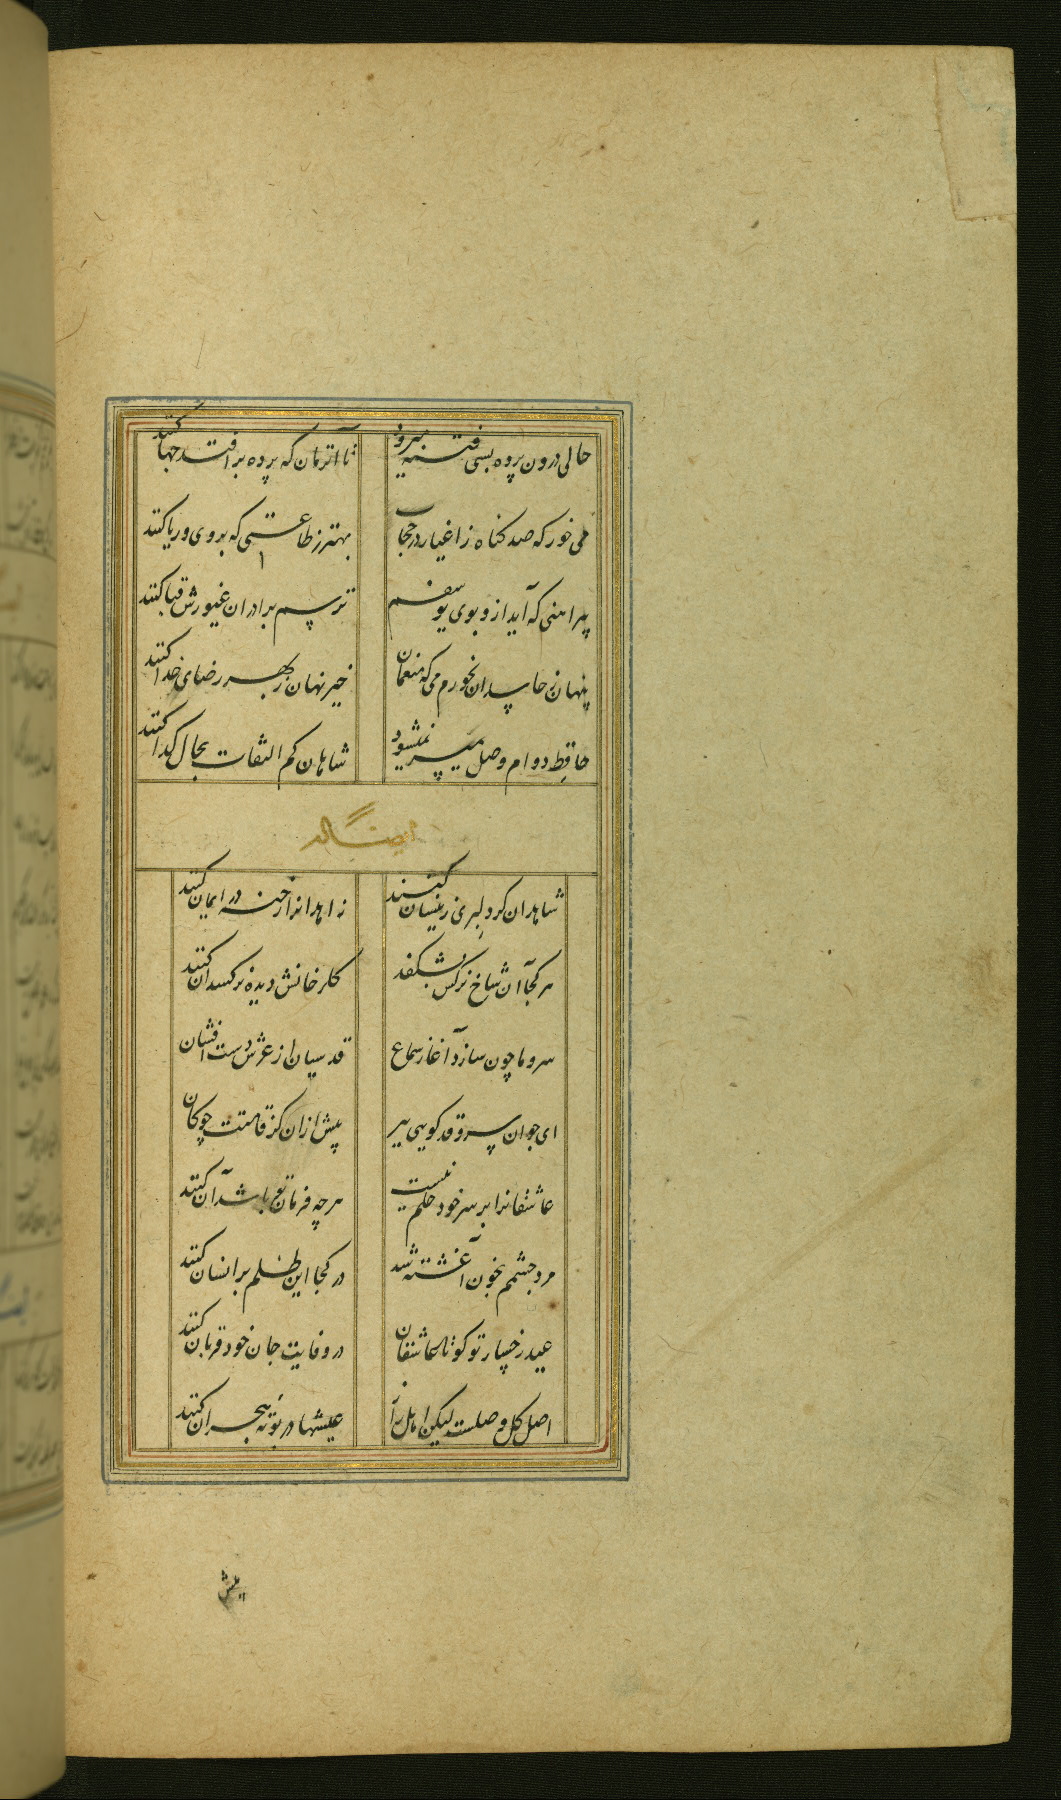 حالی درون پرده بسی فتنه میرود تا آنزمان که پرده برافتد چها کنند
می خور که صد کناه ز اغیار در حجاب بهتر ز طاعتی که بروی و ریا کنند
پیراهنی که آید ازو بوی یوسفم ترسم برادران غیورش قبا کنند
پنهان ز حاسدان بخورم می که منعمان خیر نهان ز بهر رضای خدا کنند
حافظ دوام وصل میسر نمیشود شاهان کم التفات بحال کدا کنند
ایضاً له
شاهدان کر دلبری زینسان کنند زاهدانرا رخنه در ایمان کنند
هر کجا آن شاخ نرکس بشکفد کلرخانش دیده نرکسدان کنند
سرو ما چون سازد آغاز سماع قدسیان از عرش دست افشان
ای جوان سرو قد کویی ببر پیش از ان کز قامتت چوکان
عاشقانرا بر سر خود حکم نیست هر چه فرمان تو باشد آن کنند
مردم چشمم بخون آغشته شد در کجا این ظلم بر انسان کنند
عید رخسار تو کو تا عاشقان در وفایت جان خود قربان کنند
اصل کل وصلست لیکن اهل عیشها در بوته هجران کنند